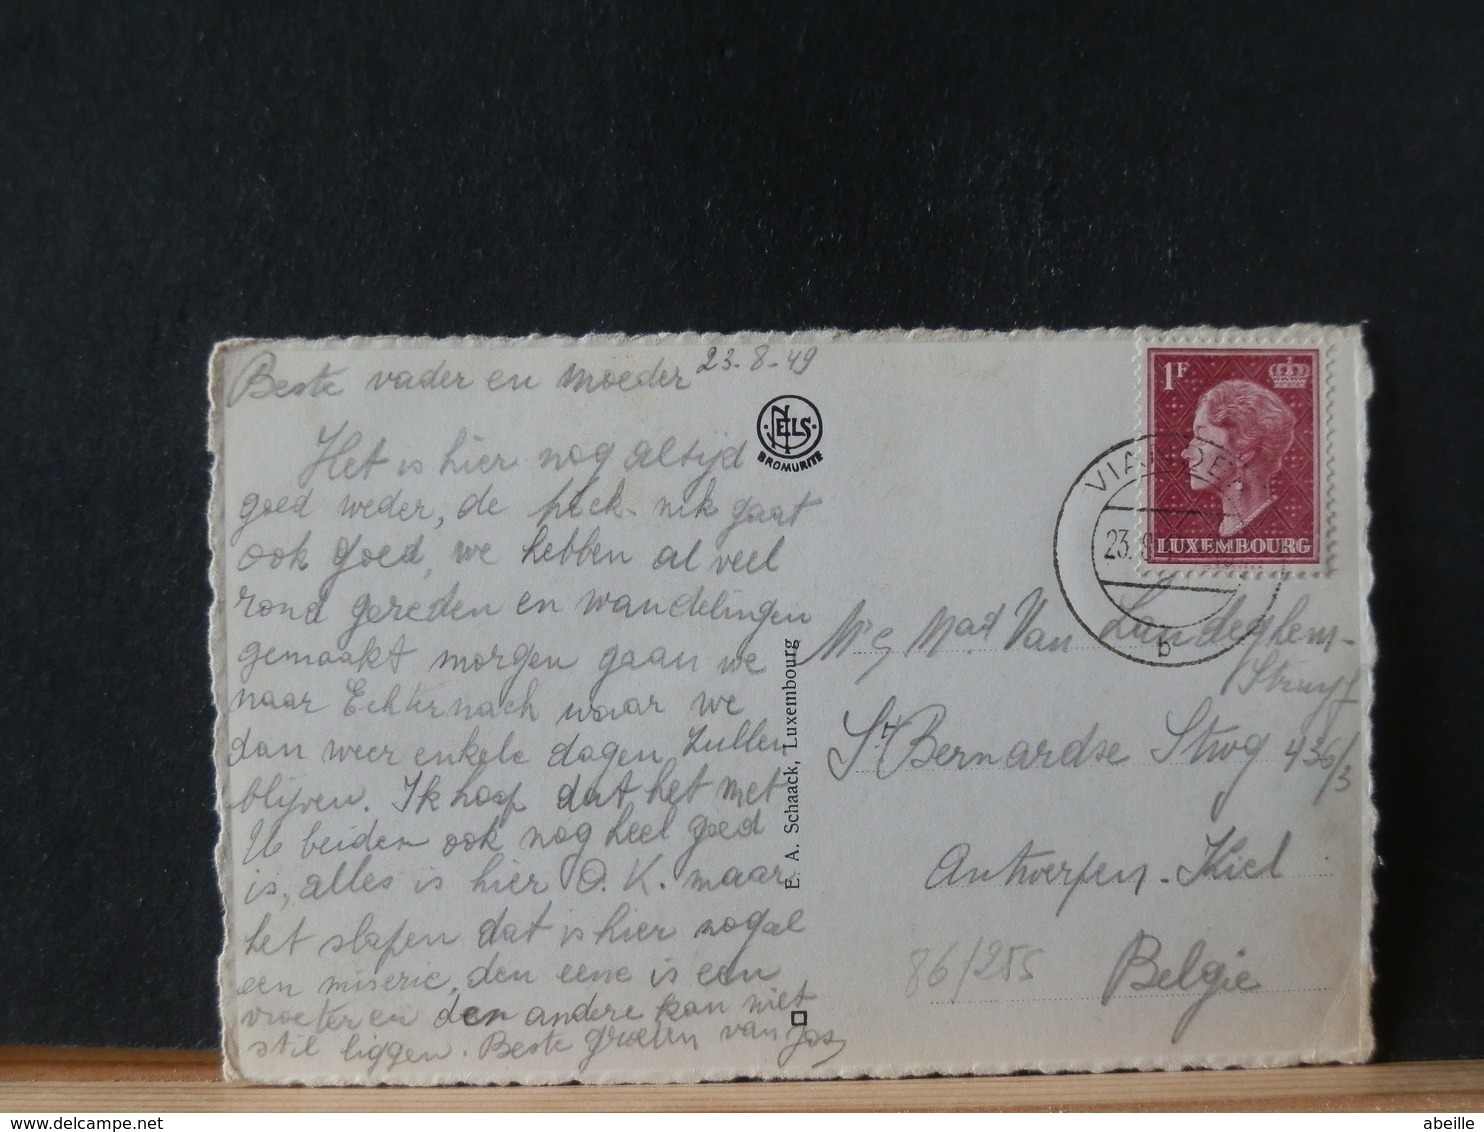 Beste vader en moeder 23-8-49
Het is hier nog altijd
goed weder, de pick-nik gaat
ook goed, we hebben al veel
rond gereden en wandelingen
gemaakt morgen gaan we
naar Echternach waar we
dan weer enkele dagen zullen
blijven. Ik hoop dat het met
U beiden ook nog heel goed
is, alles is hier O.K. maar
het slapen dat is hier nogal
een miserie, den eene is een
vroeter en den andere kan niet
stil liggen. Beste groeten van Jos
NELS
BROMURITE
E. A. Schaack, Luxembourg
1F
LUXEMBOURG
VIANDEN
23.8
b
Mr & Mad Van Landeghem-
Struyf
St Bernardse Stwg 436/3
Antwerpen-Kiel
België
86/255
delcampe.net
abeille